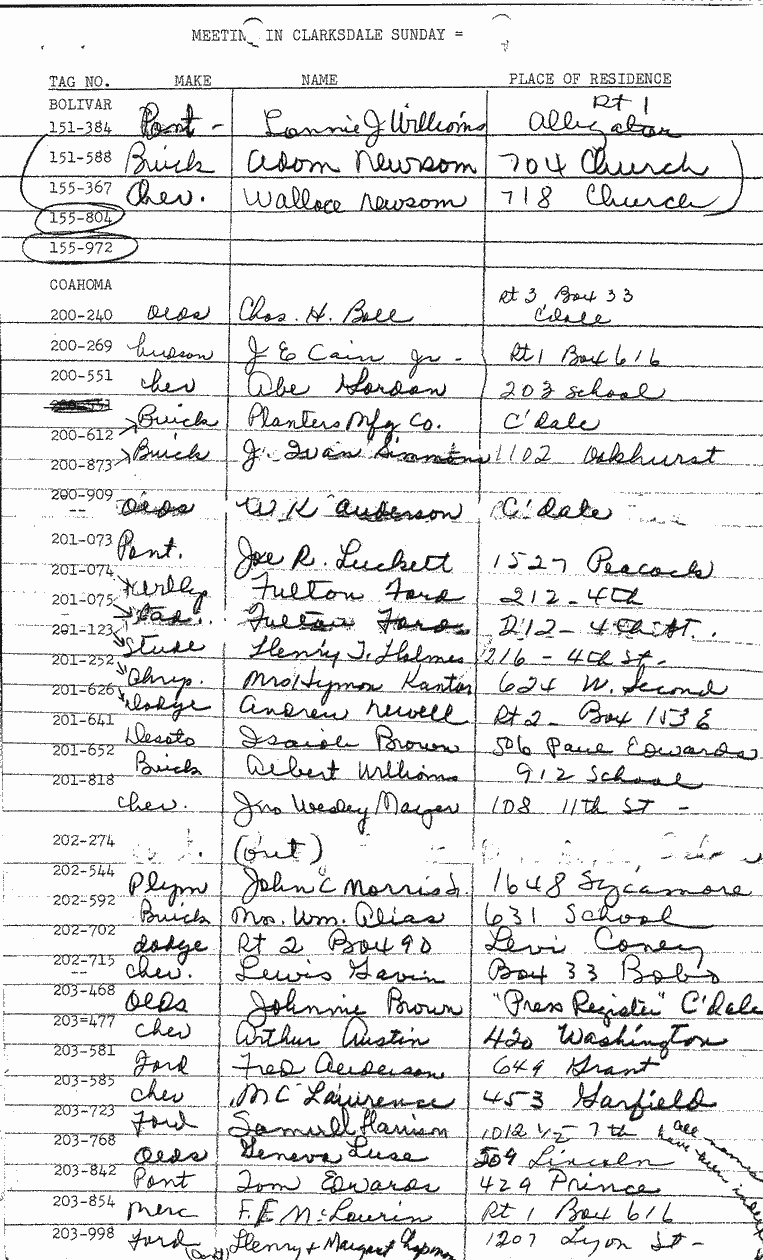 MEETING IN CLARKSDALE SUNDAY =
TAG NO. MAKE NAME PLACE OF RESIDENCE
BOLIVAR Rt 1
151-384 Pont - Lonnie J Williams Alligator
151-588 Buick Adam Newsom 704 Church
155-367 Chev. Wallace Newsom 718 Church
155-804
155-972
COAHOMA Rt 3 Box 33
200-240 Olds Chas. H. Bell C'dale
200-269 Hudson J E Cain Jr - Rt 1 Box 616
200-551 Chev Abe Gordon 203 School
200-612 Buick Planters Mfg Co. C'dale
200-873 Buick J. Ivan Simmons 1102 Oakhurst
200-909 -- Olds W K Anderson C'dale
201-073 Pont. Joe R. Luckett 1527 Peacock
201-074 Fulton Ford 212 - 4th
201-075 -- Fulton Ford 212 - 4th St.
201-123 Stude Henry T. Holmes 216 - 4th St -
201-252 Chryp. Mrs Hyman Kantor 624 W. Second
201-626 Dodge Andrew Newell Rt 2 - Box 153 E
201-641 Desoto Isaiah Brown 506 Paul Edwards
201-652 Buick Albert Williams 912 School
201-818 Chev. Jno Wesley Mayer 108 11th St -
202-274 (out)
202-544 Plym John C Morris 1648 Sycamore
202-592 Buick Mrs. Wm. Alias 631 School
202-702 Dodge Rt 2 Box 90 Levi Coney
202-715 -- Chev. Lewis Gavin Box 33 Bobo
203-468 Olds Johnnie Brown "Press Register" C'dale
203=477 Chev Arthur Austin 420 Washington
203-581 Ford Fred Anderson 649 Grant
203-585 Chev M C Lawrence 453 Garfield
203-723 Ford Samuel Harrison 1012 1/2 7th
203-768 Olds Geneva Luse 509 Lincoln
203-842 Pont Tom Edwards 429 Prince
203-854 Merc F. E McLaurin Rt 1 Box 616
203-998 Ford Henry & Margaret Chapman 1207 Lyon St -
all names have been